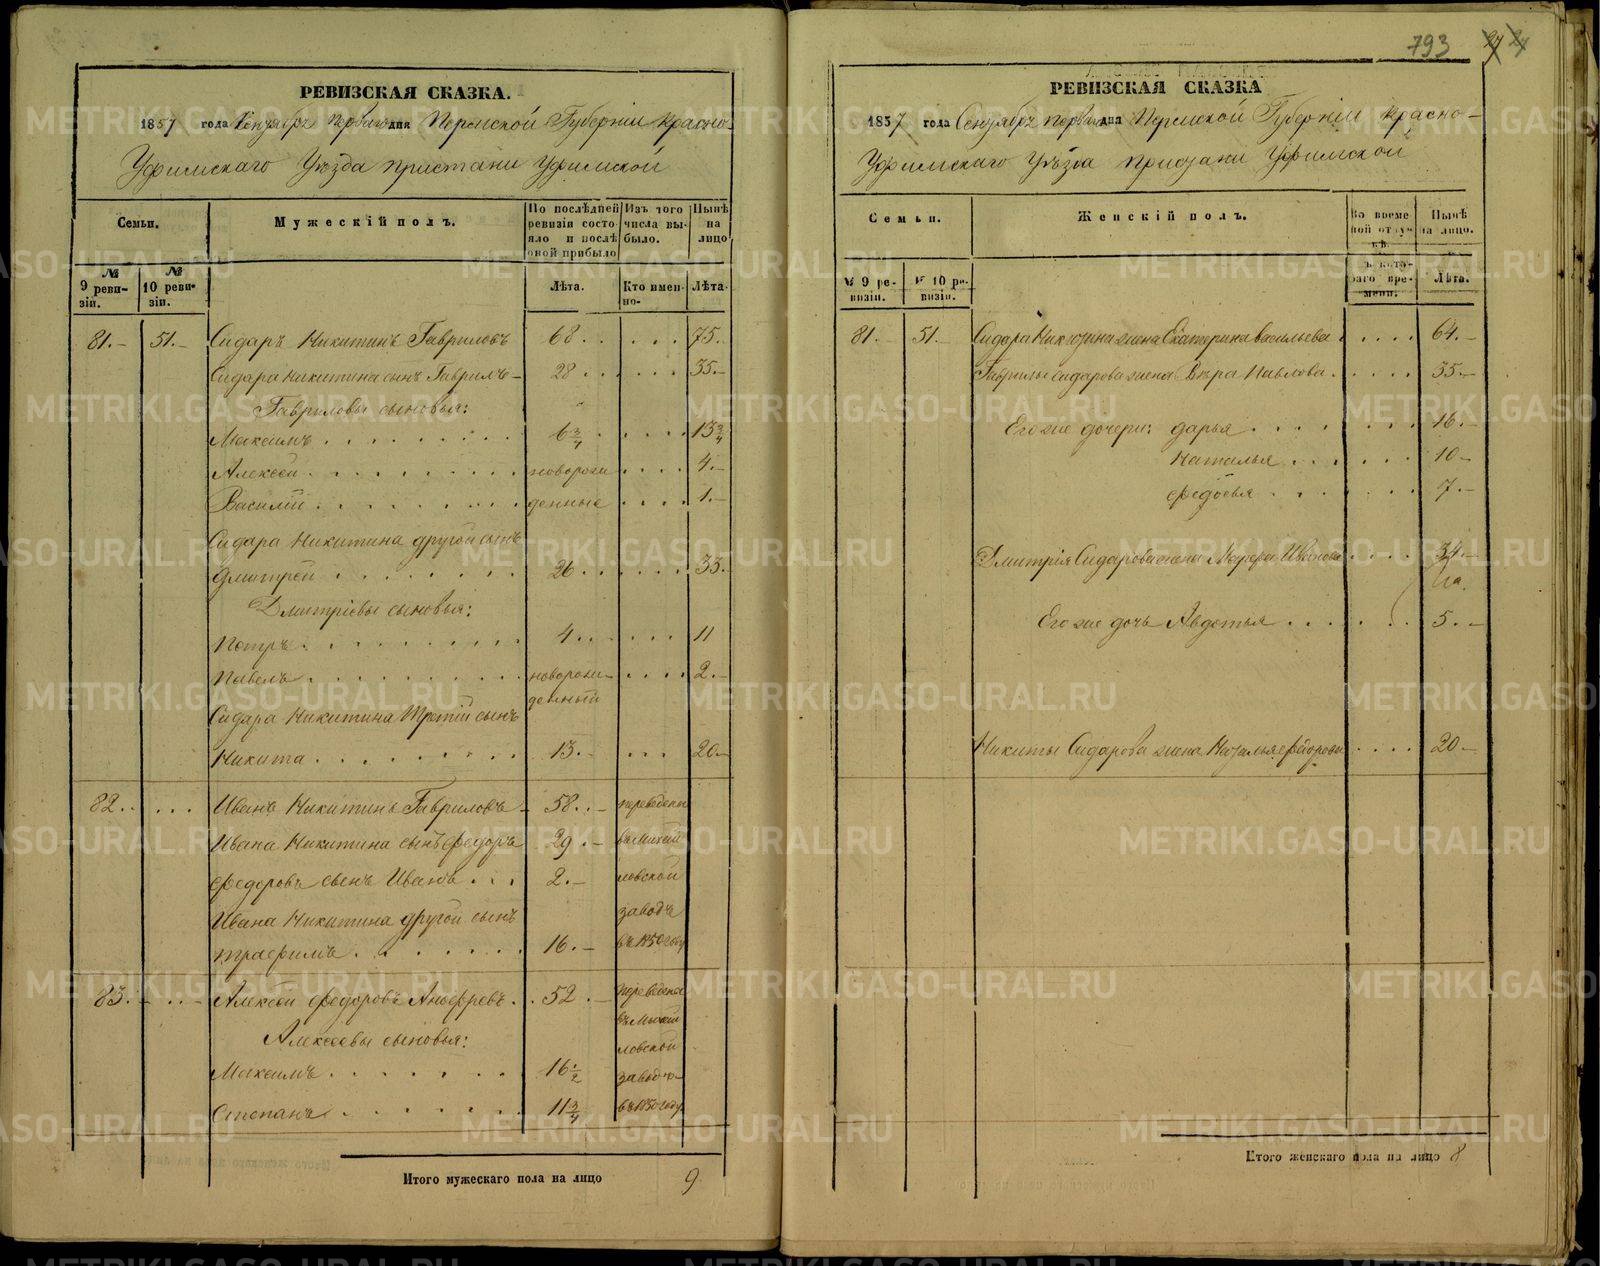 793
РЕВИЗСКАЯ СКАЗКА.
1857 года Сентября перваго дня Пермской Губерніи Красно-
Уфимскаго Уѣзда пристани Уфимской
Семьи.
Мужескій полъ.
По послѣдней ревизіи состояло и послѣ оной прибыло
Изъ того числа выбыло.
Нынѣ на лицо
№ 9 ревизіи.
№ 10 ревизіи.
Лѣта.
Кто именно-
Лѣта.
81.- 51.- Сидаръ Никитинъ Гавриловъ 68 75.
Сидара Никитина сынъ Гаврилъ- 28 35.-
Гавриловы сыновья:
Максимъ 6 3/4 13 3/4
Алексей новорож 4.-
Василій денные 1.-
Сидара Никитина другой сынъ
Дмитрей 26 33.-
Дмитріевы сыновья:
Петръ 4 11
Павелъ новорож- 2.-
денный
Сидара Никитина третій сынъ
Никита 13.- 20-
82. Иванъ Никитинъ Гавриловъ- 58.- переведены
Ивана Никитина сынъ Федоръ 29.- въ Михай
Федоровъ сынъ Иванъ 2.- ловской
Ивана Никитина другой сынъ заводъ
Трафимъ 16.- въ 1850 году
83.- Алексей Федоровъ Анофревъ 52.- переведены
въ Михай
Алексеевы сыновья: ловской
Максимъ 16 1/2 заводъ
Степанъ 11 3/4 въ 1850 году
Итого мужескаго пола на лицо 9
РЕВИЗСКАЯ СКАЗКА
1857 года Сентября перваго дня Пермской Губерніи Красно-
Уфимскаго Уѣзда пристани Уфимской
Семьи.
Женскій полъ.
Во временной отлучкѣ.
Нынѣ на лицо.
№ 9 ревизіи.
№ 10 ревизіи.
Съ котораго времени.
Лѣта.
81. 51. Сидара Никитина жена Екатерина Васильева 64.-
Гаврилы Сидарова жена Вѣра Павлова 35.-
Его же дочери: Дарья 16.-
Наталья 10-
Федосья 7.-
Дмитрія Сидарова жена Марфа Иванова 34-
Его же дочь Авдотья 5.-
Никиты Сидарова жена Наталья Федорова 20-
Итого женскаго пола на лицо 8
METRIKI.GASO-URAL.RU